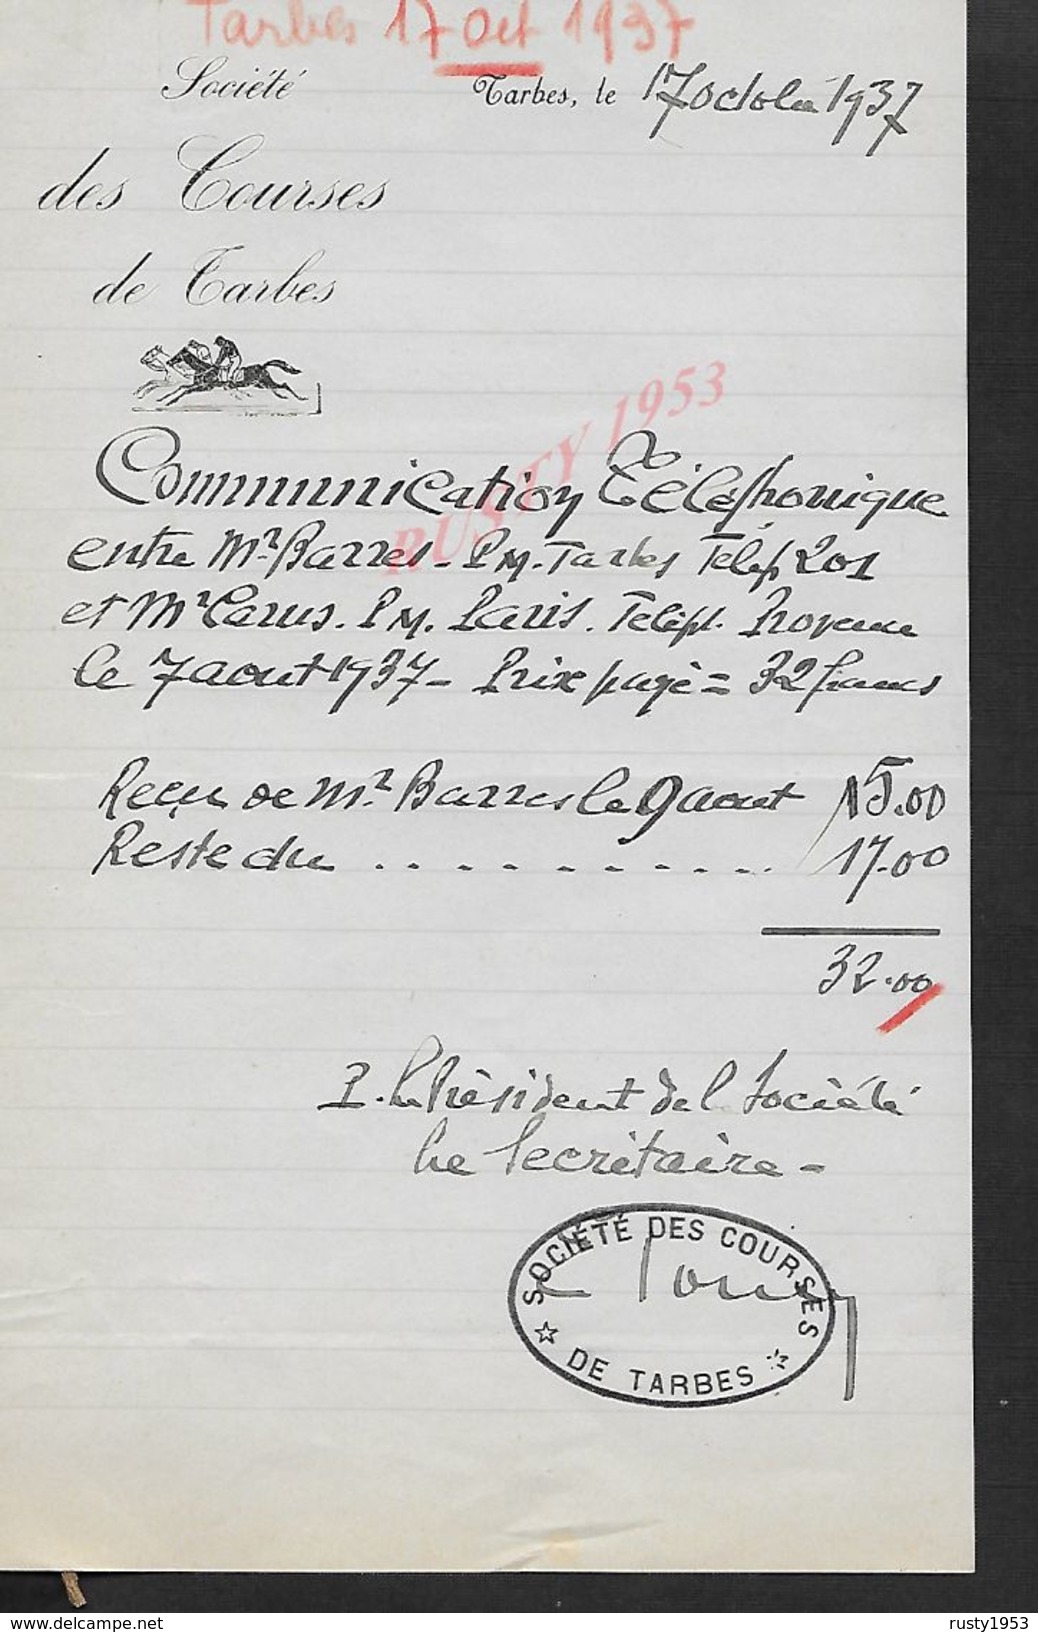 Tarbes 17 oct 1937
Société
des Courses
de Tarbes
Tarbes, le 17 octobre 1937
Communication Téléphonique
entre Mr Barres. P.M. Tarbes Teléph 201
et Mr Carus. P.M. Paris. Teléph. Provence
le 7 aout 1937 - Prix payé = 32 francs
Reçu de Mr Barres le 9 aout 15.00
Reste du . . . . . . . . . . . 17.00
32.00
P. le Président de la Société
Le Secrétaire -
SOCIÉTÉ DES COURSES
DE TARBES
RUSTY 1953
www.delcampe.net
rusty1953